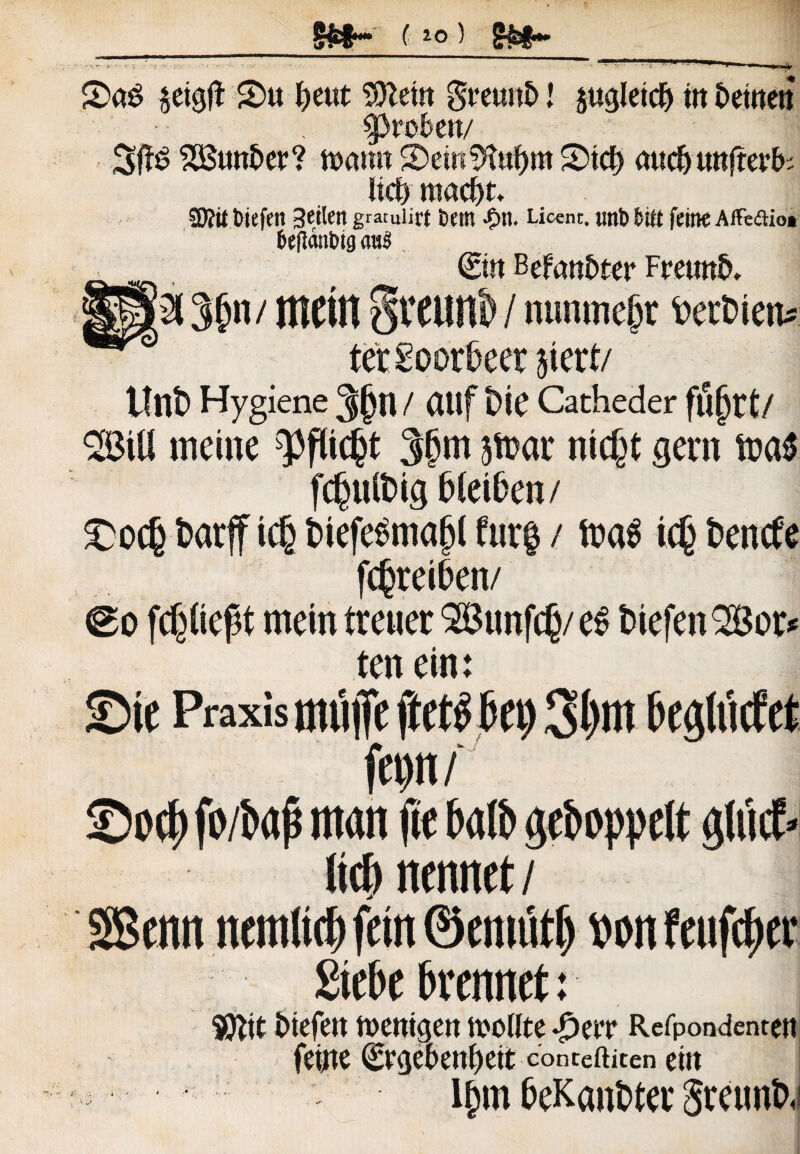 ( 20 )
Das zeigst Du heut Mein Freund! zugleich in deinen
Proben/
Ists Wunder? wann Dein Ruhm Dich auch unsterb-
lich macht.
Mit diesen Zeilen gratulirt dem Hn. Licent. und bitt seine Affection
beständig aus
Ein Bekandter Freund.
DA Ihn/ mein Freund / nunmehr verdien-
ter Loorbeer ziert/
Und Hygiene Ihn / auf die Catheder führt/
Will meine Pflicht Ihm zwar nicht gern was
schuldig bleiben/
Doch darff ich diesesmahl kurtz / was ich dencke
schreiben/
So schließt mein treuer Wunsch/ es diesen Wor-
ten ein:
Die Praxis müsse stets bey Ihm beglücket
seyn/
Doch so/daß man sie bald gedoppelt glück-
lich nennet /
Wenn nemlich sein Gemüth von keuscher
Liebe brennet:
Mit diesen wenigen wollte Herr Respondenten
seine Ergebenheit contestiten ein
Ihm beKandter Freund.